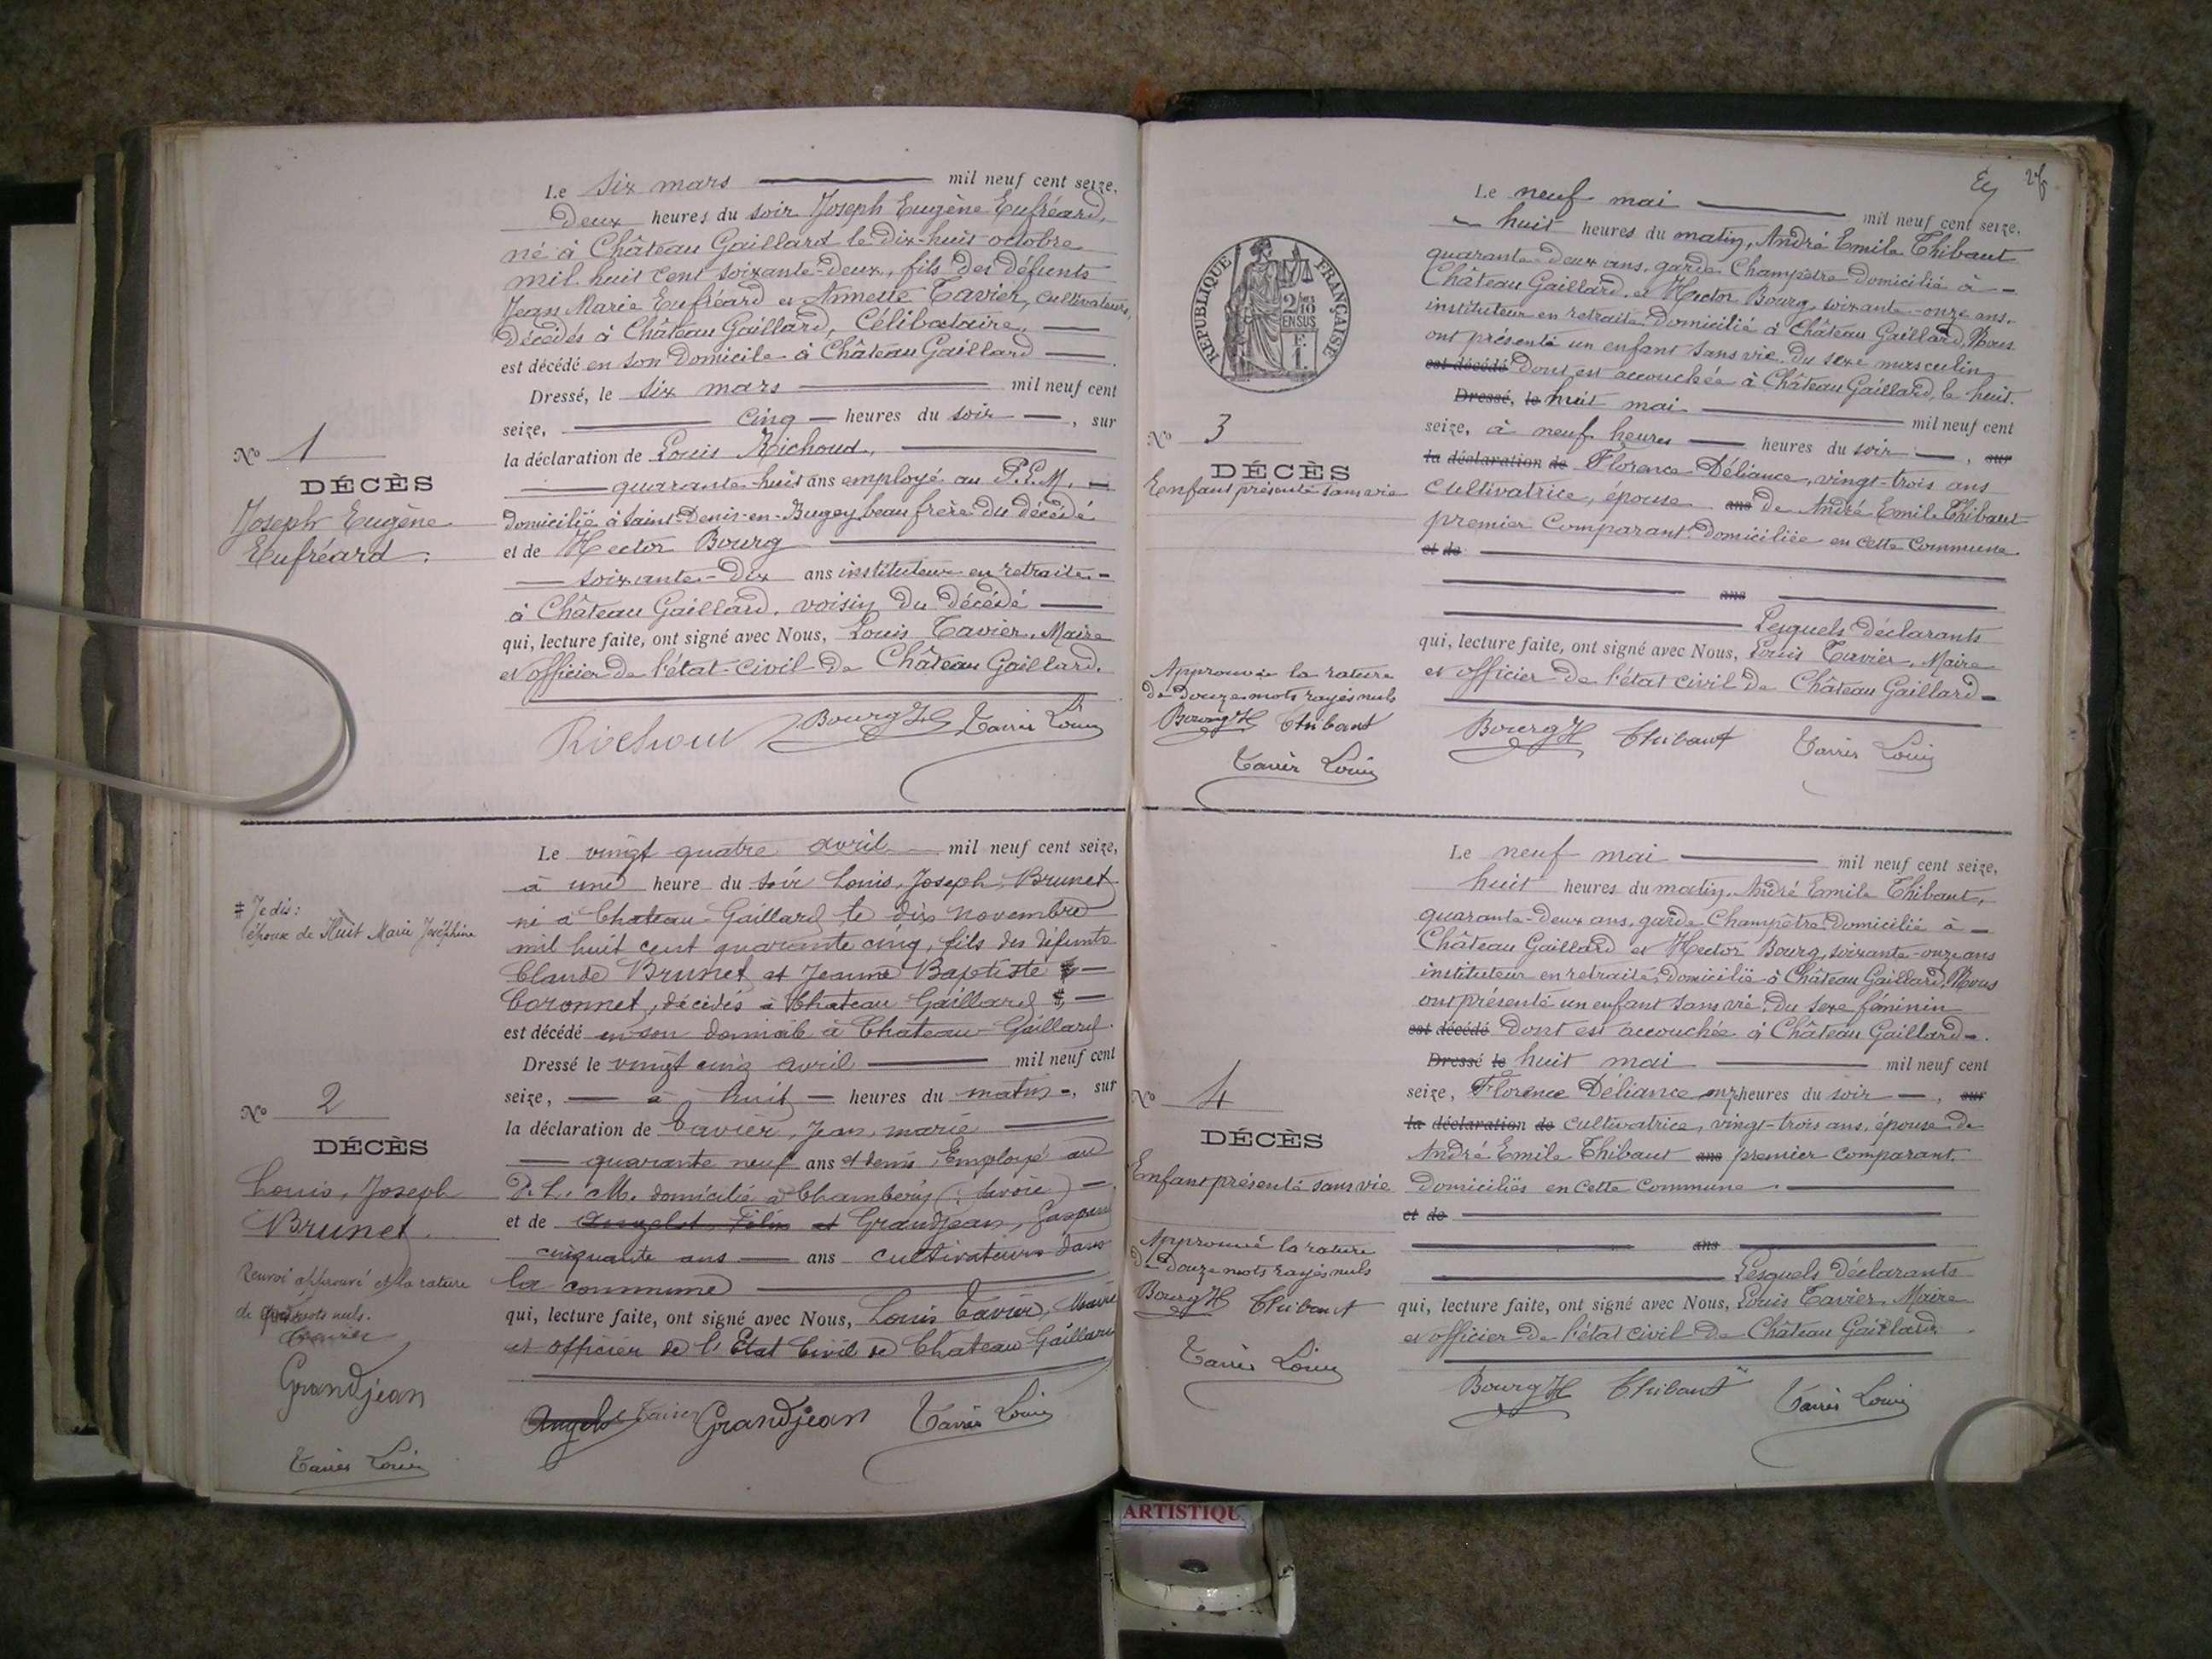 Le six mars mil neuf cent seize,
Deux heures du soir Joseph Eugène Eufréard,
né à Château Gaillard le Dix-huit octobre
mil huit cent soixante-Deux, fils des défunts
Jean Marie Eufréard et Annette Tavier, cultivateurs,
Décédés à Château Gaillard, Célibataire,
est décédé en son Domicile à Château Gaillard
Dressé, le six mars mil neuf cent
seize, cinq heures du soir, sur
la déclaration de Louis Richoud,
quarante-huit ans employé au P.L.M.
Domicilié à Saint-Denis-en-Bugey, beau frère du décédé
et de Hector Bourg
soixante-Dix ans instituteur en retraite
à Château Gaillard, voisin du Décédé
qui, lecture faite, ont signé avec Nous, Louis Tavier, Maire
et officier de l'état-civil de Château Gaillard.
Richoud Bourg H Tavier Louis
No 1
DÉCÈS
Joseph Eugène
Eufréard.
Le vingt quatre avril mil neuf cent seize,
à une heure du soir Louis, Joseph, Brunet
né à Chateau-Gaillard le dix novembre
mil huit cent quarante cinq, fils des défunts
Claude Brunet et Jeanne Baptiste
Coronnet, décédés à Chateau Gaillard #
est décédé en son domicile à Chateau-Gaillard.
Dressé le vingt cinq avril mil neuf cent
seize, à huit heures du matin, sur
la déclaration de Tavier, Jean, marie
quarante neuf ans et demi, Employé au
P. L. M. domicilié à Chambéry (Savoie)
et de Angelot Félix et Grandjean, Gaspard
cinquante ans ans cultivateurs dans
la commune
qui, lecture faite, ont signé avec Nous, Louis Tavier, Maire
et officier de l'Etat Civil de Chateau Gaillard
Angelot Tavier Grandjean Tavier Louis
# Je dis:
époux de Huit Marie Joséphine
No 2
DÉCÈS
Louis, Joseph
Brunet.
Renvoi approuvé et la rature
de mots nuls.
Tavier
Grandjean
Tavier Louis
26
Le neuf mai mil neuf cent seize,
huit heures du matin, André Emile Thibaut
quarante-deux ans, garde Champêtre Domicilié à
Château Gaillard, et Hector Bourg, soixante-onze ans,
instituteur en retraite Domicilié à Château Gaillard, Nous
ont présenté un enfant sans vie du sexe masculin
est décédé Dont est accouchée à Château Gaillard, le huit.
Dressé, le huit mai mil neuf cent
seize, à neuf heures heures du soir, sur
la déclaration de Florence Déliance, vingt-trois ans
cultivatrice, épouse ans de André Emile Thibaut
premier Comparant. Domiciliée en cette Commune
et de
ans
Lesquels Déclarants
qui, lecture faite, ont signé avec Nous, Louis Tavier, Maire
et officier de l'état civil de Château Gaillard
Bourg H Thibaut Tavier Louis
RÉPUBLIQUE FRANÇAISE
2/10
EN SUS
F.
1.
No 3
DÉCÈS
Enfant présenté sans vie
Approuvée la rature
de Douze mots rayés nuls
Bourg H Thibaut
Tavier Louis
Le neuf mai mil neuf cent seize,
huit heures du matin, André Emile Thibaut,
quarante-deux ans, garde Champêtre Domicilié à
Château Gaillard et Hector Bourg, soixante-onze ans
instituteur en retraite, Domicilié à Château Gaillard, Nous
ont présenté un enfant sans vie du sexe féminin
est décédé Dont est accouchée à Château Gaillard.
Dressé le huit mai mil neuf cent
seize, Florence Déliance onze heures du soir, sur
la déclaration de cultivatrice, vingt-trois ans, épouse de
André Emile Thibaut ans premier comparant.
Domiciliés en cette Commune
et de
ans
Lesquels Déclarants
qui, lecture faite, ont signé avec Nous, Louis Tavier, Maire
et officier de l'état civil de Château Gaillard.
Bourg H Thibaut Tavier Louis
No 4
DÉCÈS
Enfant présenté sans vie
Approuvé la rature
de Douze mots rayés nuls
Bourg H Thibaut
Tavier Louis
ARTISTIQU